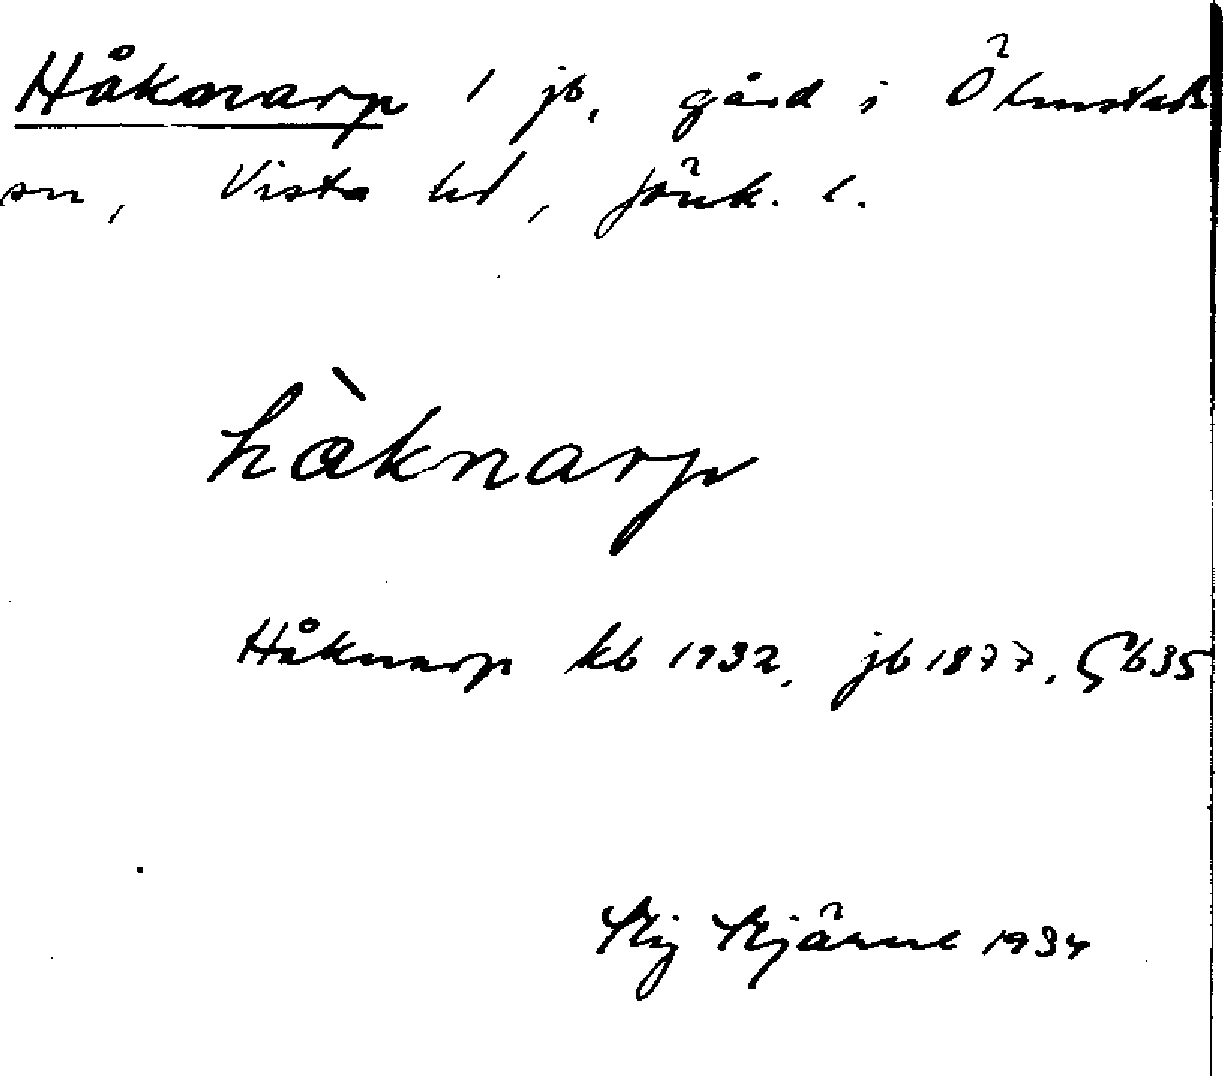 Håknarp 1 jb, gård i Ölmstads
sn, Vista hd, Jönk. l.
hàknarp
Håknarp kb 1932, jb 1877, Gb35
Stig Stjärne 1934